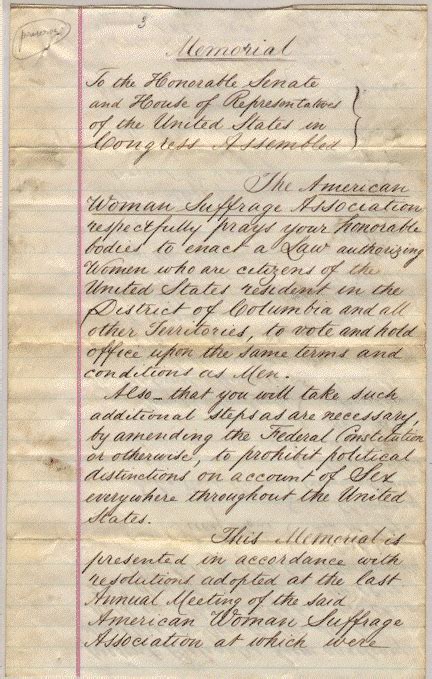 3
Memorial
To the Honorable Senate
and House of Representatives
of the United States in
Congress Assembled
The American
Woman Suffrage Association
respectfully prays your honorable
bodies to enact a Law authorizing
Women who are citizens of the
United States resident in the
District of Columbia and all
other Territories, to vote and hold
office upon the same terms and
conditions as Men.
Also - that you will take such
additional steps as are necessary,
by amending the Federal Constitution
or otherwise, to prohibit political
distinctions on account of Sex
everywhere throughout the United
States.
This Memorial is
presented in accordance with
resolutions adopted at the last
Annual Meeting of the said
American Woman Suffrage
Association at which were